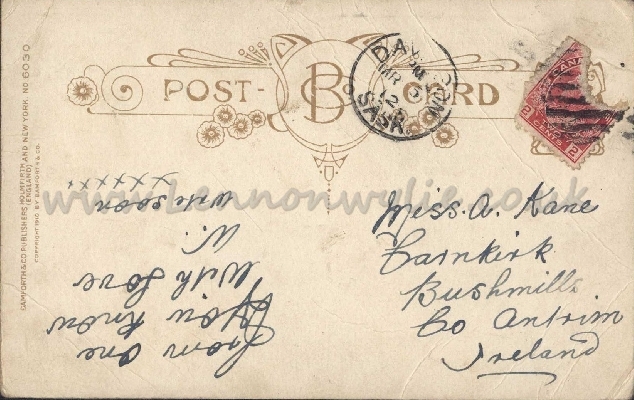 POST-CARD
B
DAVIDSON
PM
MR 5
12
SASK.
CANADA
2 CENTS 2
BAMFORTH & CO PUBLISHERS, HOLMFIRTH AND NEW YORK. NO 6030
(ENGLAND)
COPYRIGHT 1910 BY BAMFORTH & CO.
www.Lennonwylie.co.uk
From one
you know
With Love
W.
write soon
xxxxxx
Miss. A. Kane
Carnkirk
Bushmills
Co Antrim
Ireland